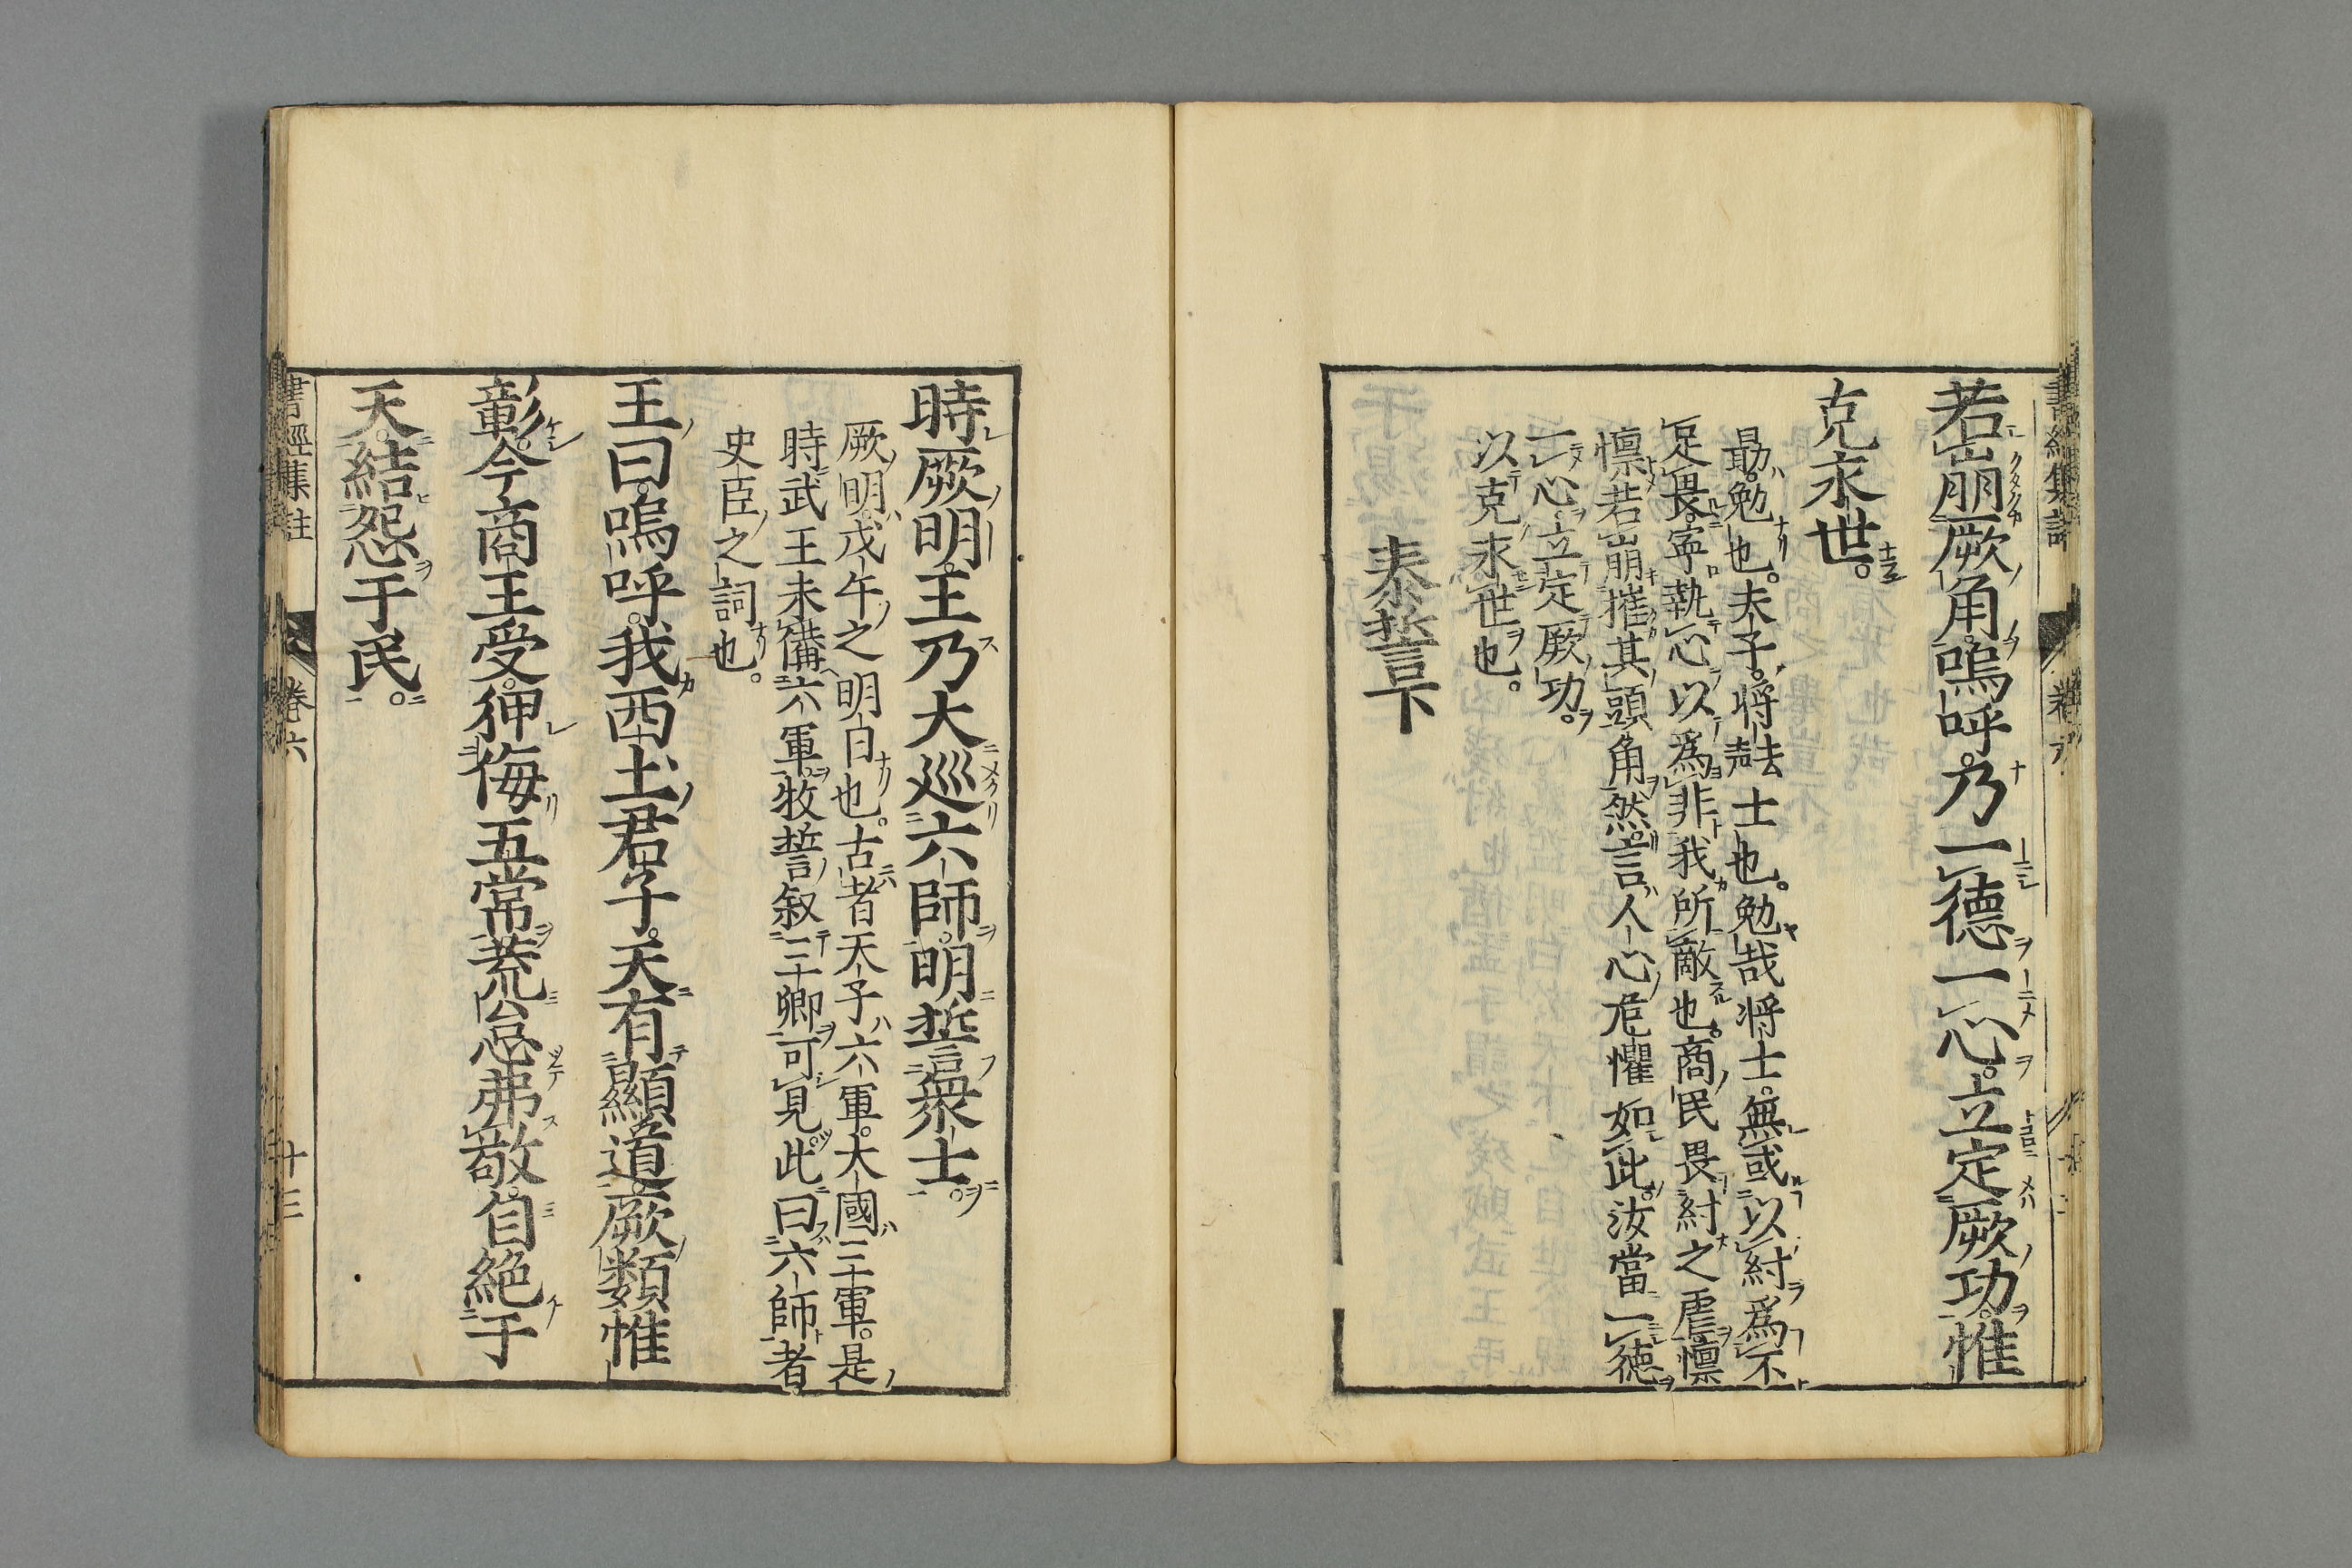 若崩厥角嗚呼乃一德一心立定厥功惟
克永世。
勗勉也。夫子。將士也。勉哉將士。無或以紂爲不
足畏。寧執心以爲非我所敵也。商民畏紂之虐懍
懍若崩摧其頭角然。言人心危懼如此。汝當一德
一心立定厥功。
以克永世也。
泰誓下
時厥明。王乃大巡六師。明誓衆士。
厥明。戊午之明日也。古者天子六軍。大國三軍。是
時武王未備六軍。牧誓叙三卿可見。此曰六師者
史臣之詞也。
王曰。嗚呼。我西土君子。天有顯道。厥類惟
彰。今商王受。狎侮五常。荒怠弗敬。自絕于
天。結怨于民。
書經集註 卷六 十三